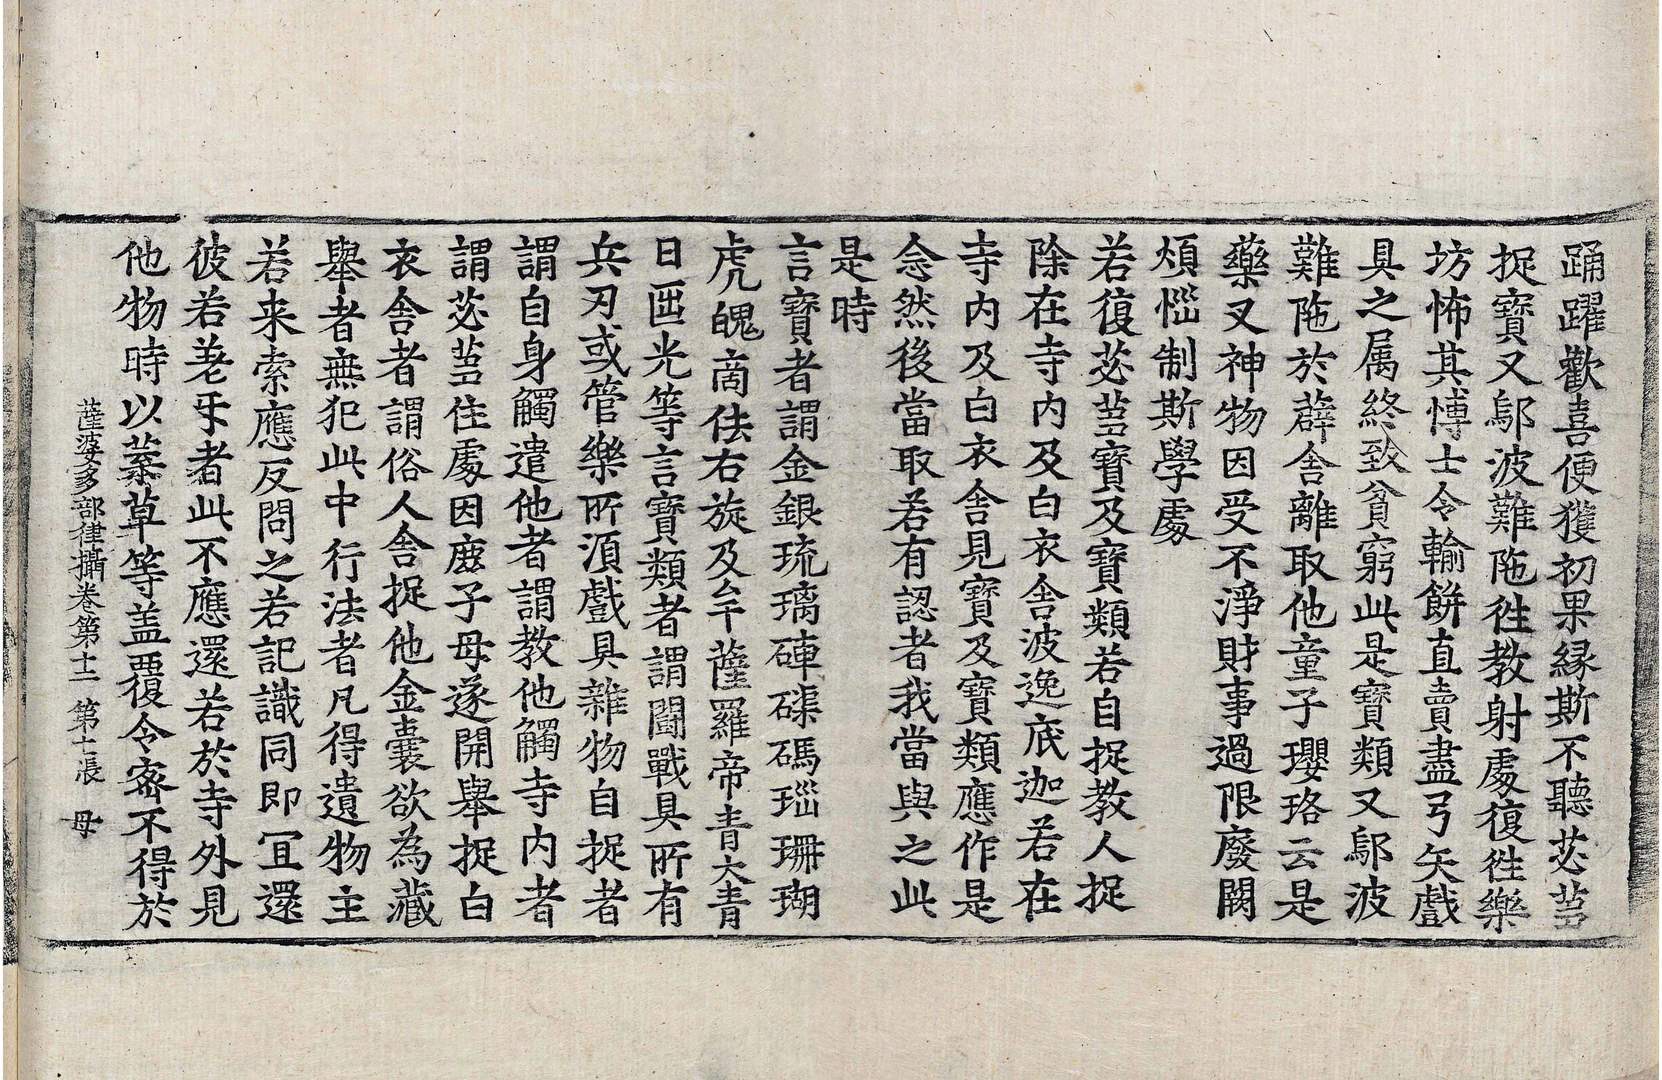 踊躍歡喜便獲初果緣斯不聽苾芻
捉寶又鄔波難陁往教射處復往樂
坊怖其愽士令輸餅直賣盡弓矢戲
具之属終致貧窮此是寶類又鄔波
難陁於薜舍離取他童子瓔珞云是
藥叉神物因受不淨財事過限廢闕
煩惱制斯學處
若復苾芻寶及寶類若自捉教人捉
除在寺內及白衣舍波逸底迦若在
寺內及白衣舍見寶及寶類應作是
念然後當取若有認者我當與之此
是時
言寶者謂金銀琉璃硨磲碼瑙珊瑚
虎魄商佉右旋及牟薩羅帝青大青
日面光等言寶類者謂鬪戰具所有
兵刃或管樂所湏戲具雜物自捉者
謂自身觸遣他者謂教他觸寺內者
謂苾芻住處因鹿子母遂開舉捉白
衣舍者謂俗人舍捉他金囊欲為藏
舉者無犯此中行法者凡得遺物主
若来索應反問之若記識同即冝還
彼若差牙者此不應還若於寺外見
他物時以葉草等盖覆令密不得於
薩婆多部律攝卷第十二 第七張 母